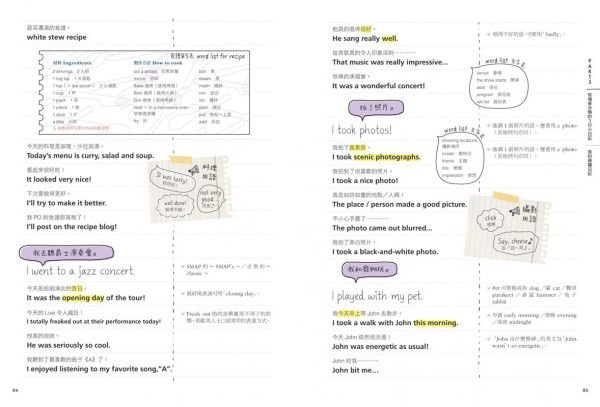 蔬菜濃湯的食譜。
white stew recipe
食譜單字表 word list for recipe
材料 Ingredients
2 servings 2 人份
1 cup 1 杯
1 pack 1 袋
1 piece 1 塊
1 slice 1 片
作法 How to cook
cut a potato 切馬鈴薯
mince 切碎
fry 炒
boil 煮
steam 蒸
mash 搗碎
mix 混合
stir 攪拌
add 添加
今天的料理是咖哩、沙拉與湯。
Today's menu is curry, salad and soup.
看起來很好吃!
It looked very nice!
下次要做得更好。
I'll try to make it better.
我 PO 到食譜部落格了!
I'll post on the recipe blog!
料理用語
It was tasty!
好好吃!
well done!
not very good
我去聽爵士演奏會。
I went to a jazz concert.
今天是巡迴演出的首日。
It was the opening day of the tour!
今天的 Live 令人瘋狂!
I totally freaked out at their performance today!
他真的很帥。
He was seriously so cool.
我聽到了最喜歡的曲子《A》了!
I enjoyed listening to my favorite song,"A".
※ SMAP 的～ SMAP's～／古典的～ classic～
※ 最終場表演可用「closing day」。
※ Freak out 指的是興奮得不得了的狀態，是歐美人士口語常用的表達方式。
84
他真的唱得很好。
He sang really well.
這首歌真的令人印象深刻⋯⋯⋯⋯
That music was really impressive...
很棒的演唱會。
It was a wonderful concert!
word list 單字表
venue 會場
the show starts 開演
seat 座位
program 節目表
set list 曲目表
※ 唱得不好的話，可使用「badly」。
拍!照片。
I took photos!
我拍了風景照。
I took scenic photographs.
我拍到了很喜歡的照片。
I took a nice photo!
真是如詩如畫的地點／人啊!
The place / person made a good picture.
不小心手震了⋯⋯⋯⋯
The photo came out blurred...
我拍了黑白照片。
I took a black-and-white photo.
word list 單字表
shooting locations
攝影場所
model 模特兒
theme 主題
title 標題
impression 感想
※ 強調 1 張照片的話，應使用 a photo（其他例句亦同）。
※ 強調 1 張照片的話，應使用 a photo（其他例句亦同）。
攝影用語
click
Say, cheese♪
我和寵物玩。
I played with my pet.
我今天早上帶 John 去散步。
I took a walk with John this morning.
今天 John 依然很活潑!
John was energetic as usual!
John 咬我⋯⋯⋯⋯
John bit me...
※ Pet 可替換成狗 dog／貓 cat／鸚哥 parakeet／倉鼠 hamster／兔子 rabbit
※ 早晨 early morning／傍晚 evening／深夜 midnight
※ 「John 沒什麼精神」的英文為「John wasn't so energetic」。
PART3
85